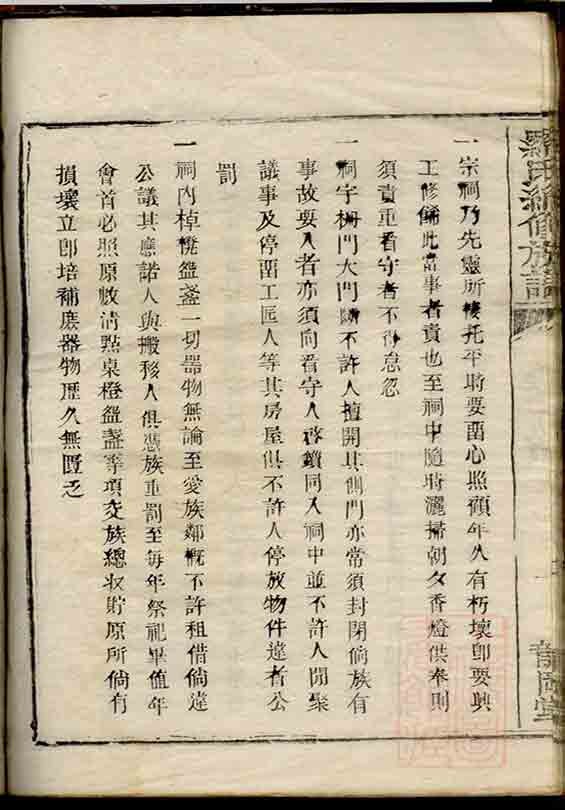 羅氏續修族譜
一宗祠乃先靈所棲托平時要畱心照顧年久有朽壞卽要興
工修備此當事者責也至祠中隨時灑掃朝夕香燈供奉則
須責重看守者不得怠忽
一祠宇柵門大門斷不許人擅開其側門亦常須封閉倘族有
事故要入者亦須向看守人啓鎖同入祠中並不許人閒聚
議事及停畱工匠人等其房屋俱不許人停放物件違者公
罰
一祠內棹櫈盤盞一切器物無論至愛族鄰槪不許租借倘違
公議其應諾人與搬移人俱憑族重罰至每年祭祀畢值年
會首必照原數淸點桌橙盤盞等項交族總收貯原所倘有
損壞立卽培補庶器物歷久無匱乏